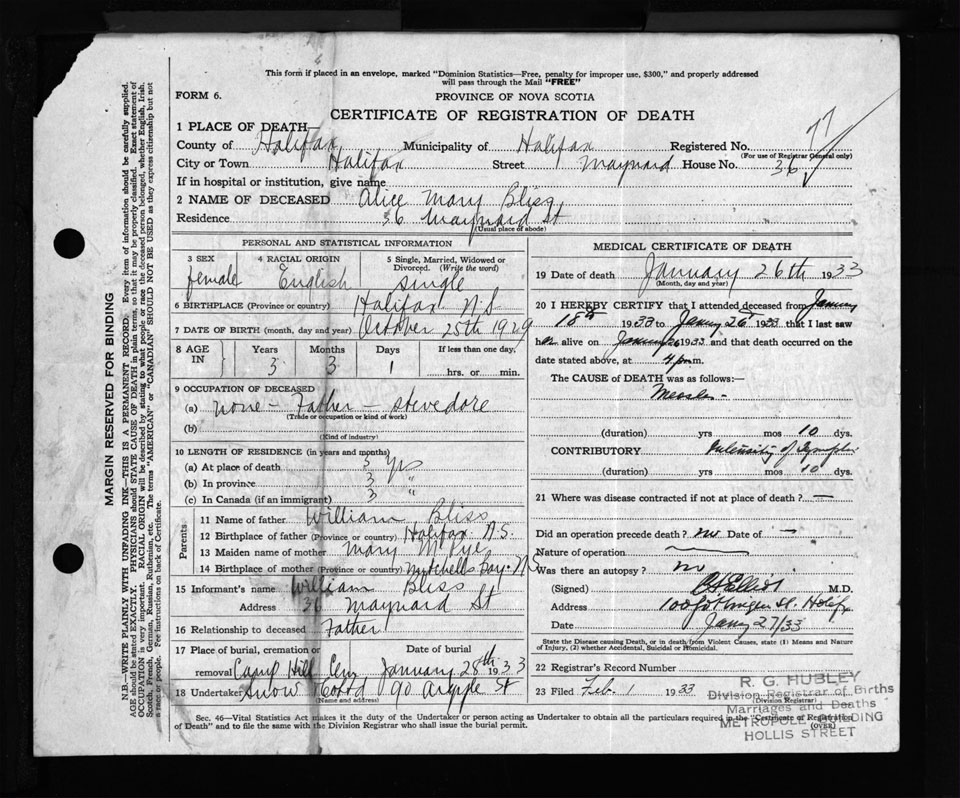 This form if placed in an envelope, marked "Dominion Statistics—Free, penalty for improper use, $300," and properly addressed
will pass through the Mail "FREE"
FORM 6.
PROVINCE OF NOVA SCOTIA
CERTIFICATE OF REGISTRATION OF DEATH
77
1 PLACE OF DEATH—
County of Halifax Municipality of Halifax Registered No.
(For use of Registrar General only)
City or Town Halifax Street Maynard House No. 36
If in hospital or institution, give name
2 NAME OF DECEASED Alice Mary Bliss
Residence 36 Maynard St
(Usual place of abode)
PERSONAL AND STATISTICAL INFORMATION
3 SEX 4 RACIAL ORIGIN 5 Single, Married, Widowed or
Divorced. (Write the word)
female English single
6 BIRTHPLACE (Province or country) Halifax N.S
7 DATE OF BIRTH (month, day and year) October 25th 1929
8 AGE IN Years Months Days If less than one day,
3 3 1 hrs. or min.
9 OCCUPATION OF DECEASED
(a) none – Father – stevedore
(Trade or occupation or kind of work)
(b)
(Kind of industry)
10 LENGTH OF RESIDENCE (in years and months)
(a) At place of death 3 yrs
(b) In province 3 "
(c) In Canada (if an immigrant) 3 "
Parents
11 Name of father William Bliss
12 Birthplace of father (Province or country) Halifax N.S.
13 Maiden name of mother Mary M Pye
14 Birthplace of mother (Province or country) Mitchells Bay. NS
15 Informant's name William Bliss
Address 36 Maynard St
16 Relationship to deceased Father
17 Place of burial, cremation or Date of burial
removal Camp Hill Cem January 28th 1933
18 Undertaker Snow 90 Argyle St
(Name and address)
MEDICAL CERTIFICATE OF DEATH
19 Date of death January 26th 1933
(Month, day and year)
20 I HEREBY CERTIFY that I attended deceased from January
18th 1933 to January 26 1933 that I last saw
alive on January 26 1933 and that death occurred on the
date stated above, at 4 p.m.
The CAUSE of DEATH was as follows:—
Measles –
(duration) yrs mos 10 dys.
CONTRIBUTORY Intensity of
(duration) yrs mos 10 dys.
21 Where was disease contracted if not at place of death? —
Did an operation precede death? no Date of —
Nature of operation
Was there an autopsy? no
(Signed) M.D.
Address Halifax
Date Jany 27/33
State the Disease causing Death, or in death from Violent Causes, state (1) Means and Nature
of Injury, (2) whether Accidental, Suicidal or Homicidal.
22 Registrar's Record Number
23 Filed Feb. 1 1933
(Division Registrar)
R. G. HUBLEY
Division Registrar of Births
Marriages and Deaths
METROPOLE BUILDING
HOLLIS STREET
Sec. 46—Vital Statistics Act makes it the duty of the Undertaker or person acting as Undertaker to obtain all the particulars required in the "Certificate of Registration
of Death" and to file the same with the Division Registrar who shall issue the burial permit.
(OVER)
MARGIN RESERVED FOR BINDING
N.B.—WRITE PLAINLY WITH UNFADING INK—THIS IS A PERMANENT RECORD. Every item of information should be carefully supplied.
AGE should be stated EXACTLY. PHYSICIANS should STATE CAUSE OF DEATH in plain terms, so that it may be properly classified. Exact statement of
OCCUPATION is very important. RACIAL ORIGIN will be described by stating to what people or race the deceased person belonged, whether English, Irish,
Scotch, French, German, Russian, Ruthenian, etc. The terms "AMERICAN" or "CANADIAN" SHOULD NOT BE USED as they express citizenship but not
a race or people. Fee instructions on back of Certificate.